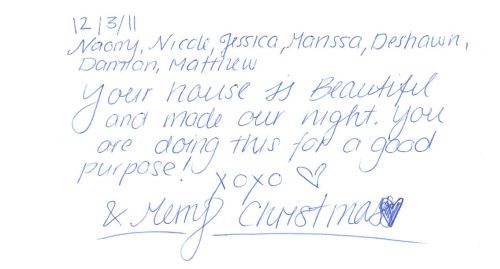 12/3/11
Naomy, Nicole, Jessica, Marissa, Deshawn,
Damian, Matthew
Your house is Beautiful
and made our night. You
are doing this for a good
purpose!
XOXO ♡
& Merry Christmas♥